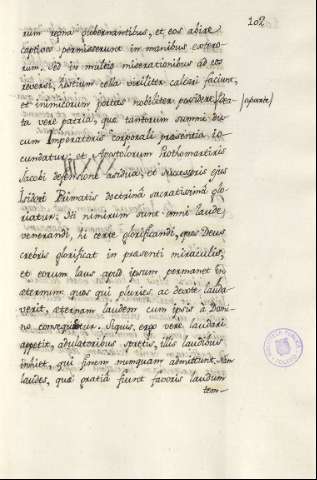 102
rum regna gubernantibus, et eos abire
captivos permisserunt in manibus extero-
rum. Ad in multis miserationibus ad eos
reversi, hostium colla viriliter calcari faciunt,
et inimicorum portas nobiliter posidere. Bea- (aparte)
ta vere patria, que tantorum summi du-
cum Imperatoris corporali prasentia io-
cundatur; et Apostolorum Prothomartiris
Jacobi defensione asidua, et succesoris ejus
Isidori Primatis doctrina sacratissima glo-
riatur; Ati nimirum sunt omni laude,
venerandi, hi certe glorificandi, quos Deus
crebris glorificat in presenti miraculis,
et eorum laus apud ipsum permanet in
æternum quos qui pluries ac devote lauda-
verit, æternam laudem cum ipsis à Domi-
no consequetur. Siquis, ergo vere laudari
appetit, adulatoribus spretis, illis laudibus
inhiet, qui finem numquam admittunt, Nam
laudes, quæ gratiâ fiunt favoris laudum
tem-